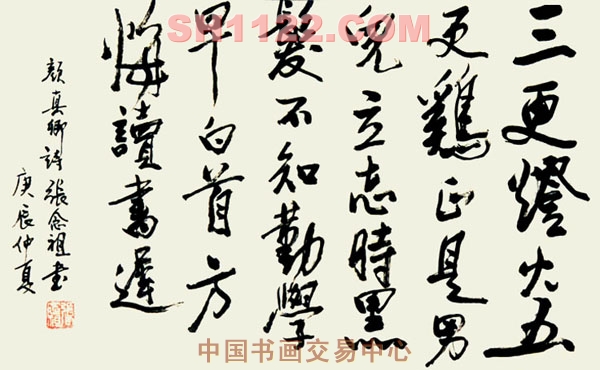 SH1122.COM
三更燈火五
更鷄正是男
兒立志時黑
髮不知勤學
早白首方
悔讀書遲
顔真卿詩張念祖书
庚辰仲夏
中国书画交易中心